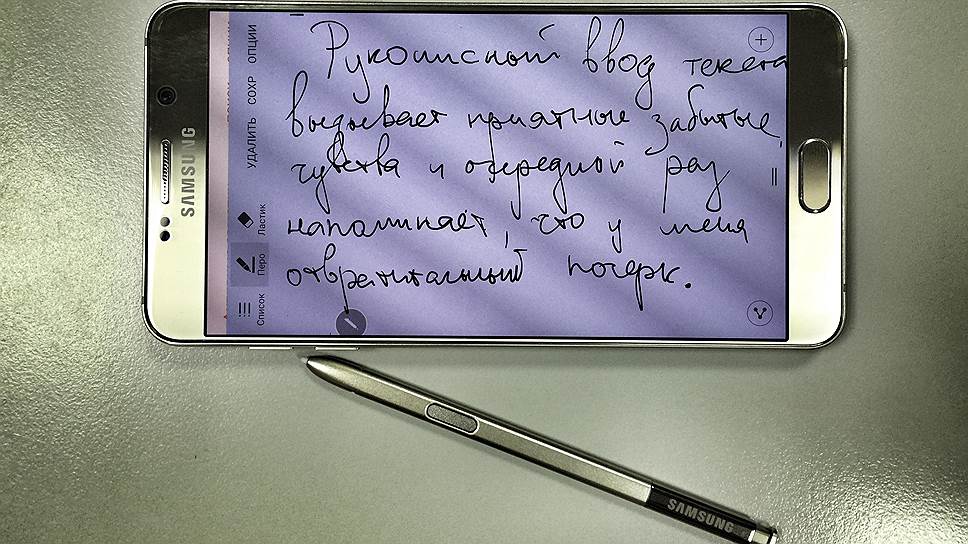 Рукописный ввод текста
вызывает приятные забытые
чувства и очередной раз
напоминает, что у меня
отвратительный почерк.
УДАЛИТЬ СОХР ОПЦИИ
Ластик
Перо
Список
SAMSUNG
SAMSUNG